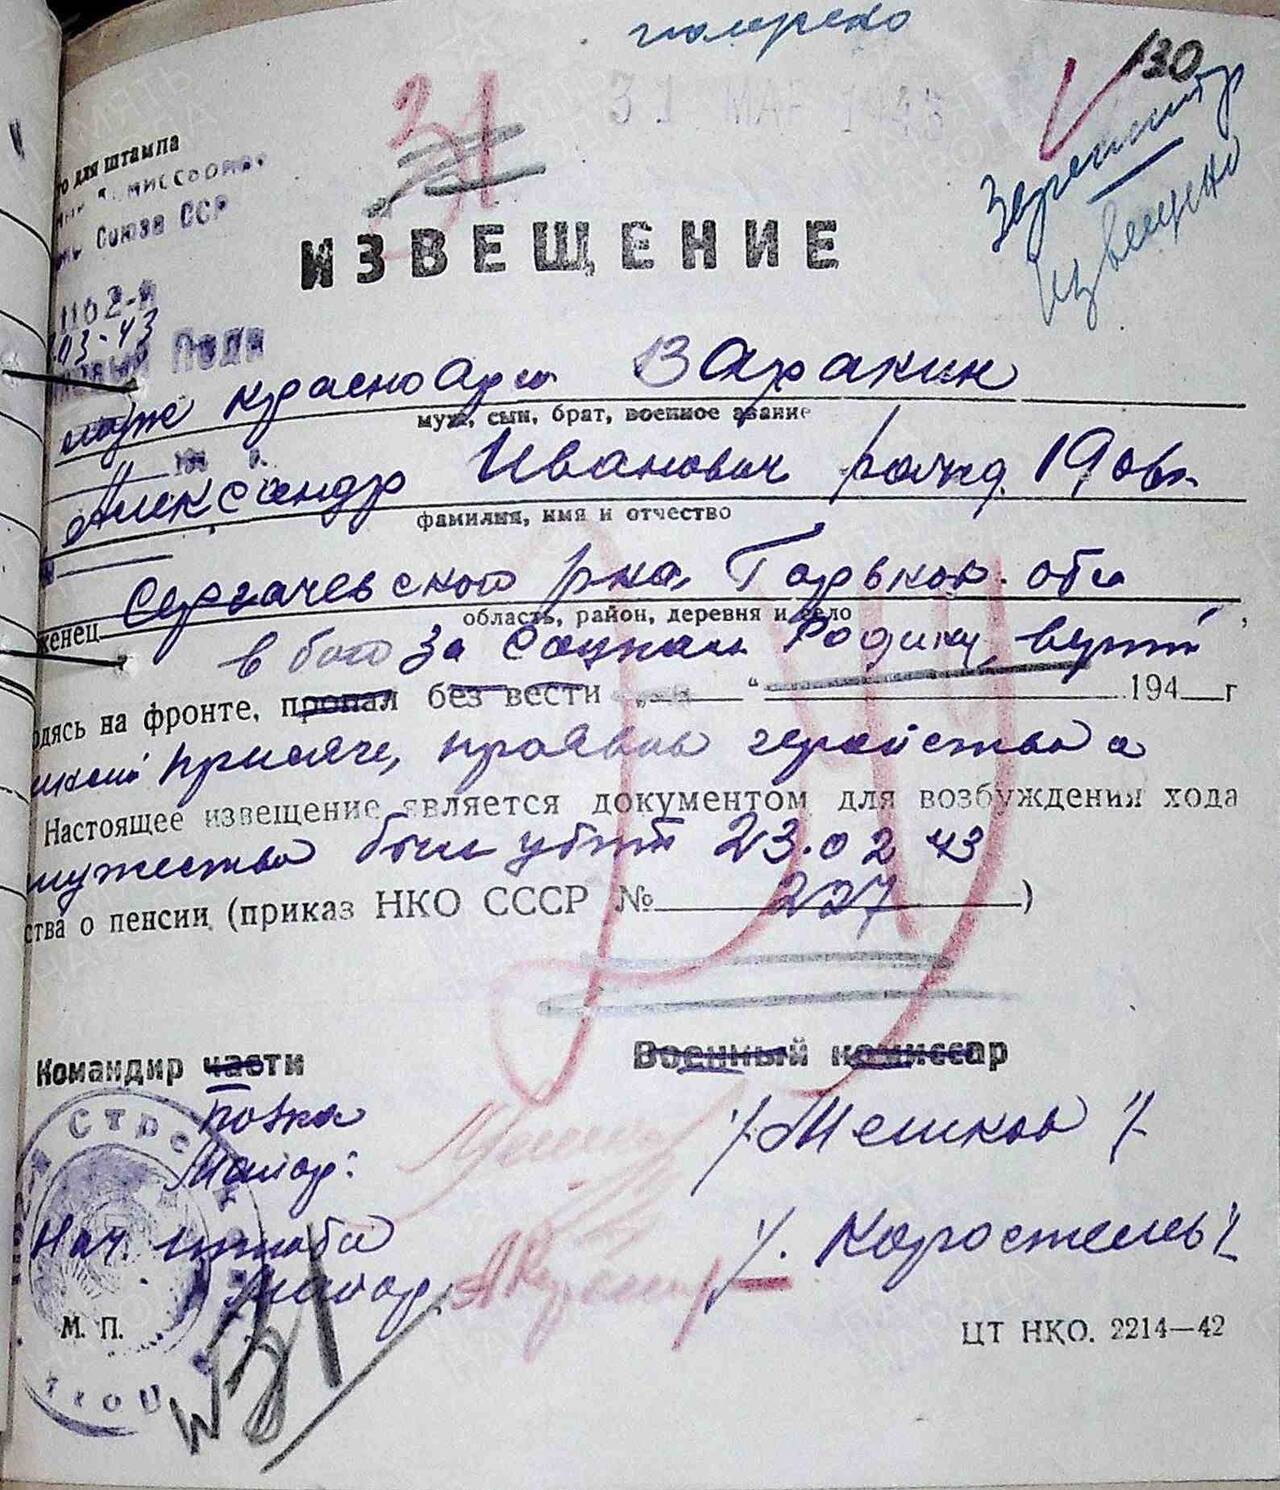 130
31 МАР 1943
31
Зарегистр
Извещено
то для штампа
Союза ССР
1162-й
03-43
ИЗВЕЩЕНИЕ
муж красноарм Варакин
муж, сын, брат, военное звание
194 г.
Александр Иванович рожд. 1906г.
фамилия, имя и отчество
женец Сергачевского рна Горьков. обл
область, район, деревня и село
в бою за Социал. Родину,
одясь на фронте, пропал без вести " 194 г
присяге, проявив геройство и
Настоящее извещение является документом для возбуждения хода
мужество был убит 23.02 43
ства о пенсии (приказ НКО СССР № 227 )
Командир части Военный комиссар
полка
Майор: /Мешков/
Нач. штаба
Майор. /Коростелев/
М. П.
ЦТ НКО. 2214—42
31